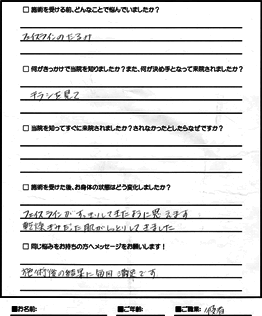 □ 施術を受ける前、どんなことで悩んでいましたか?
フェイスラインのたるみ
□ 何がきっかけで当院を知りましたか?また、何が決め手となって来院されましたか?
チラシを見て
□ 当院を知ってすぐに来院されましたか?されなかったとしたらなぜですか?
□ 施術を受けた後、お身体の状態はどう変化しましたか?
フェイスラインがすっきりしてきたように思えます
乾燥ぎみだった肌がしっとりしてきました
□ 同じ悩みをお持ちの方へメッセージをお願いします!
施術後の結果に毎回満足です
■お名前: ■ご年齢: ■ご職業: